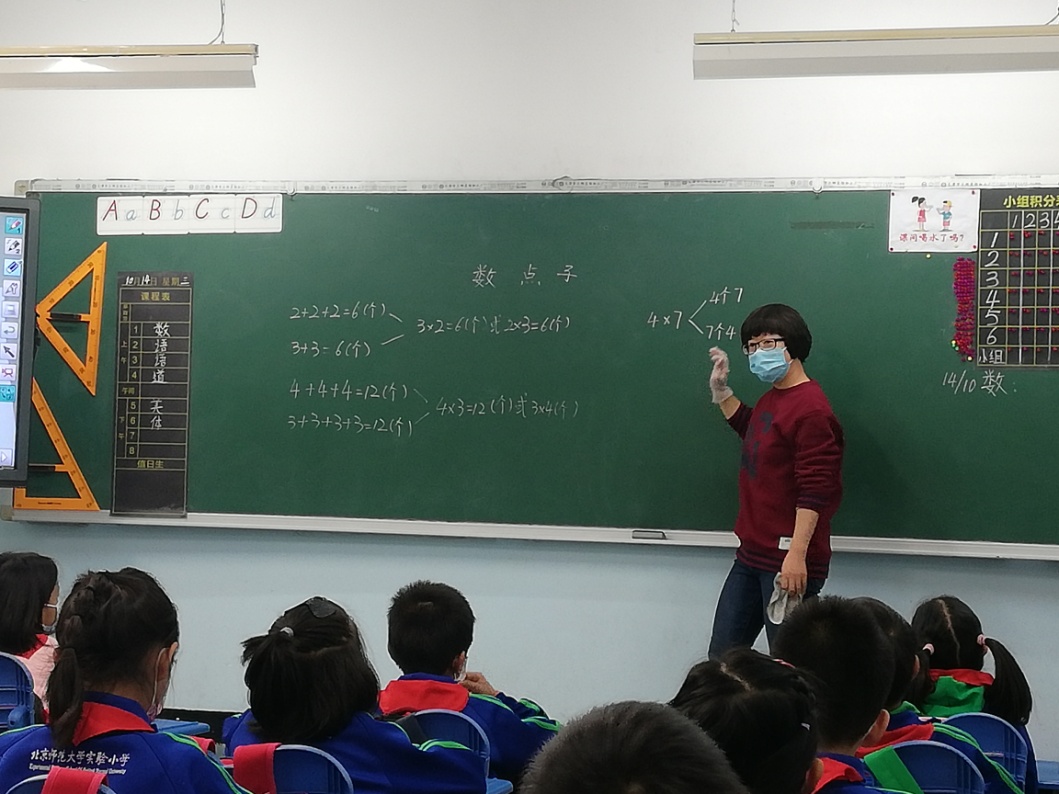 A a B b C c D d
课间喝水了吗?
小组积分
1 2 3 4
1
2
3
4
5
6
小组
14/10 数:
10月14日 星期三
课程表
上午
1 数
2 语
3 语
4 道
午间
下午
5 美
6 体
7
8
值日生
数点子
2+2+2=6(个)
3+3=6(个)
3×2=6(个)或2×3=6(个)
4+4+4=12(个)
3+3+3+3=12(个)
4×3=12(个)或3×4(个)
4×7
4个7
7个4
北京师范大学实验小学